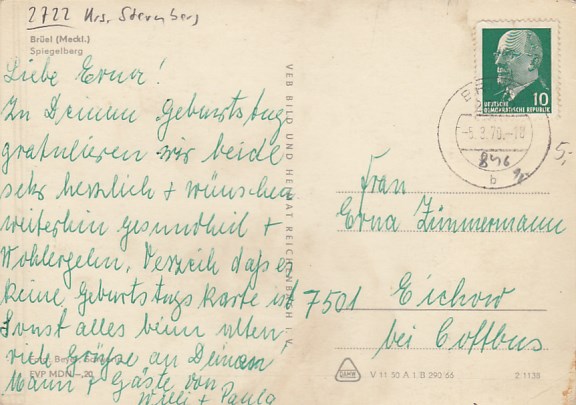 2722 Krs. Sternberg
Brüel (Meckl.)
Spiegelberg
Liebe Erna!
Zu Deinem Geburtstag
gratulieren wir beide
sehr herzlich + wünschen
weiterhin gesundheit +
Wohlergehn. Verzeih daß es
keine Geburtstagskarte ist
Sonst alles beim alten,
viele Grüße an Deinen
Mann + Gäste von
Willi + Paula
EVP MDN -,20
VEB BILD UND HEIMAT REICHENBACH I. V.
DEUTSCHE
DEMOKRATISCHE REPUBLIK
10
-5.3.70.-18
b
5,-
Frau
Erna Zimmermann
7501 Eichow
bei Cottbus
V 11 50 A 1 B 290/66
2/1138